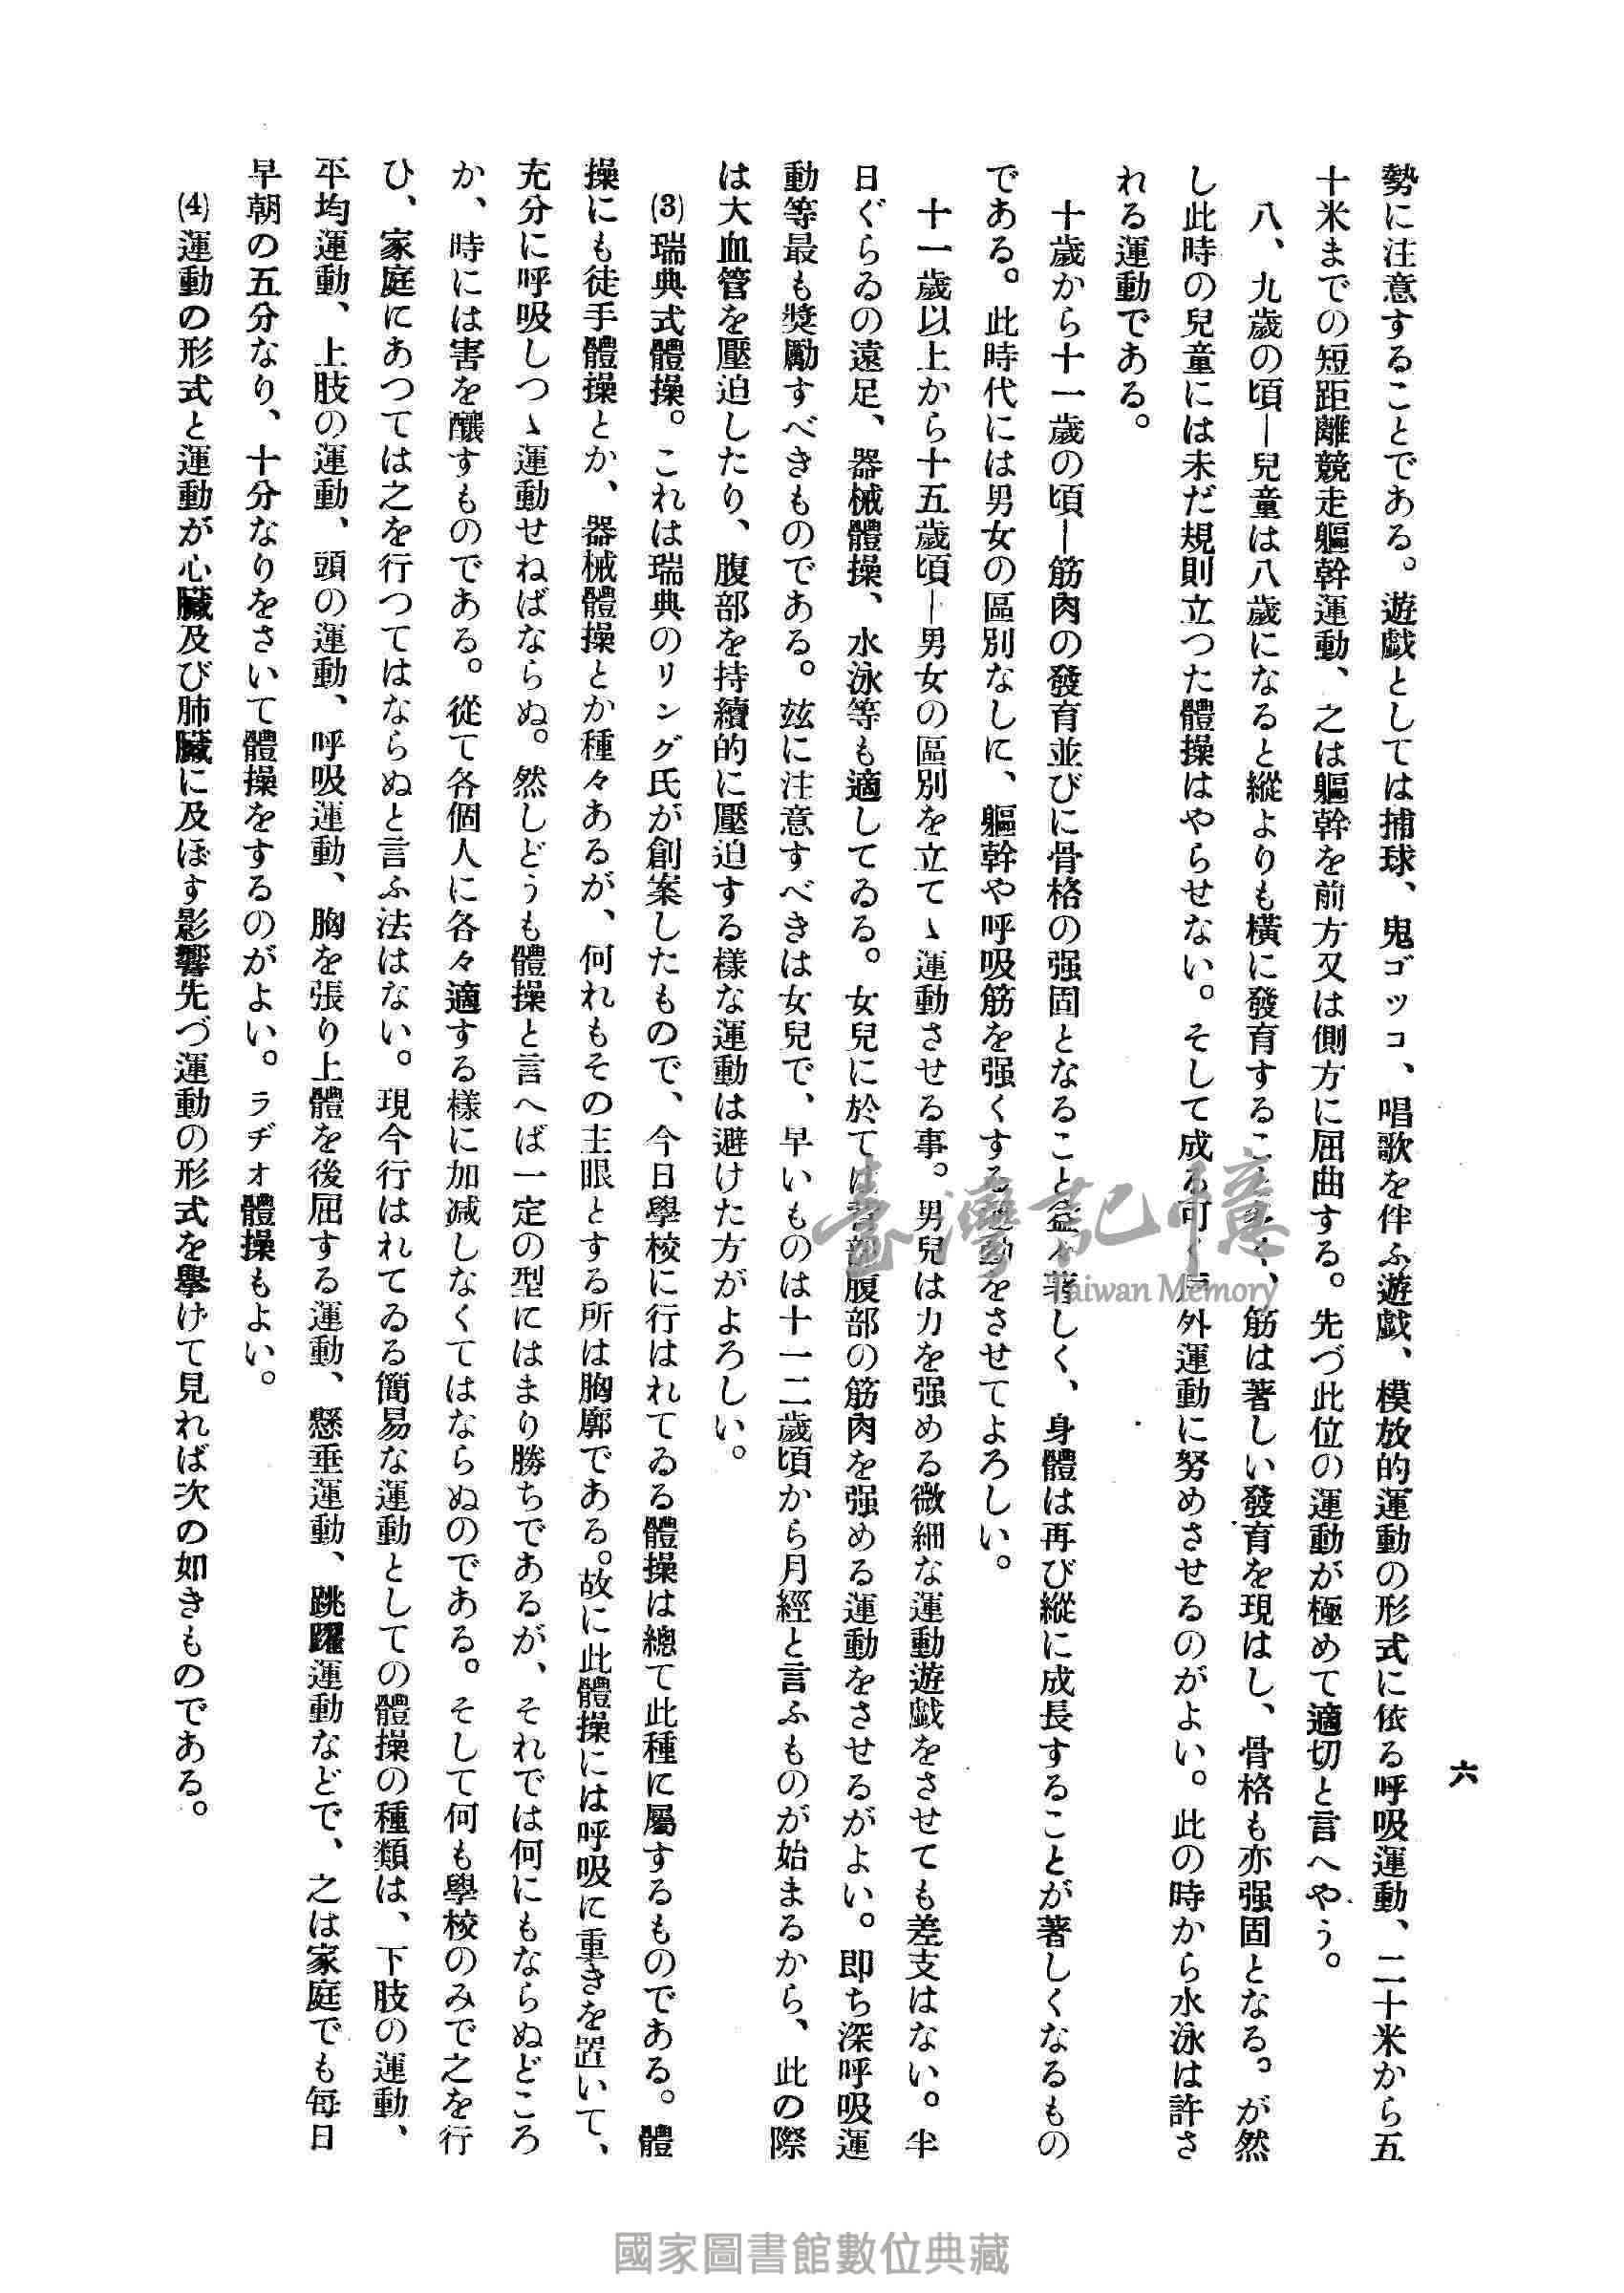 六
勢に注意することである。遊戯としては捕球、鬼ゴッコ、唱歌を伴ふ遊戯、模放的運動の形式に依る呼吸運動、二十米から五
十米までの短距離競走軀幹運動、之は軀幹を前方又は側方に屈曲する。先づ此位の運動が極めて適切と言へやう。
八、九歲の頃―兒童は八歲になると縱よりも橫に發育すること多く、筋は著しい發育を現はし、骨格も亦强固となる。が然
し此時の兒童には未だ規則立つた體操はやらせない。そして成る可く戶外運動に努めさせるのがよい。此の時から水泳は許さ
れる運動である。
十歲から十一歲の頃―筋肉の發育並びに骨格の强固となること益々著しく、身體は再び縱に成長することが著しくなるもの
である。此時代には男女の區別なしに、軀幹や呼吸筋を强くする運動をさせてよろしい。
十一歲以上から十五歲頃―男女の區別を立てゝ運動させる事。男兒は力を强める微細な運動遊戯をさせても差支はない。半
日ぐらゐの遠足、器械體操、水泳等も適してゐる。女兒に於ては背部腹部の筋肉を强める運動をさせるがよい。即ち深呼吸運
動等最も獎勵すべきものである。玆に注意すべきは女兒で、早いものは十一二歲頃から月經と言ふものが始まるから、此の際
は大血管を壓迫したり、腹部を持續的に壓迫する樣な運動は避けた方がよろしい。
(3)瑞典式體操。これは瑞典のリング氏が創案したもので、今日學校に行はれてゐる體操は總て此種に屬するものである。體
操にも徒手體操とか、器械體操とか種々あるが、何れもその主眼とする所は胸廓である。故に此體操には呼吸に重きを置いて、
充分に呼吸しつゝ運動せねばならぬ。然しどうも體操と言へば一定の型にはまり勝ちであるが、それでは何にもならぬどころ
か、時には害を釀すものである。從て各個人に各々適する樣に加減しなくてはならぬのである。そして何も學校のみで之を行
ひ、家庭にあつては之を行つてはならぬと言ふ法はない。現今行はれてゐる簡易な運動としての體操の種類は、下肢の運動、
平均運動、上肢の運動、頭の運動、呼吸運動、胸を張り上體を後屈する運動、懸垂運動、跳躍運動などで、之は家庭でも每日
早朝の五分なり、十分なりをさいて體操をするのがよい。ラヂオ體操もよい。
(4)運動の形式と運動が心臟及び肺臟に及ぼす影響先づ運動の形式を擧けて見れば次の如きものである。
臺灣記憶
Taiwan Memory
國家圖書館數位典藏